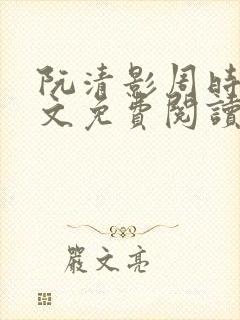 阮清影周時
文免費閱讀
嚴文亮